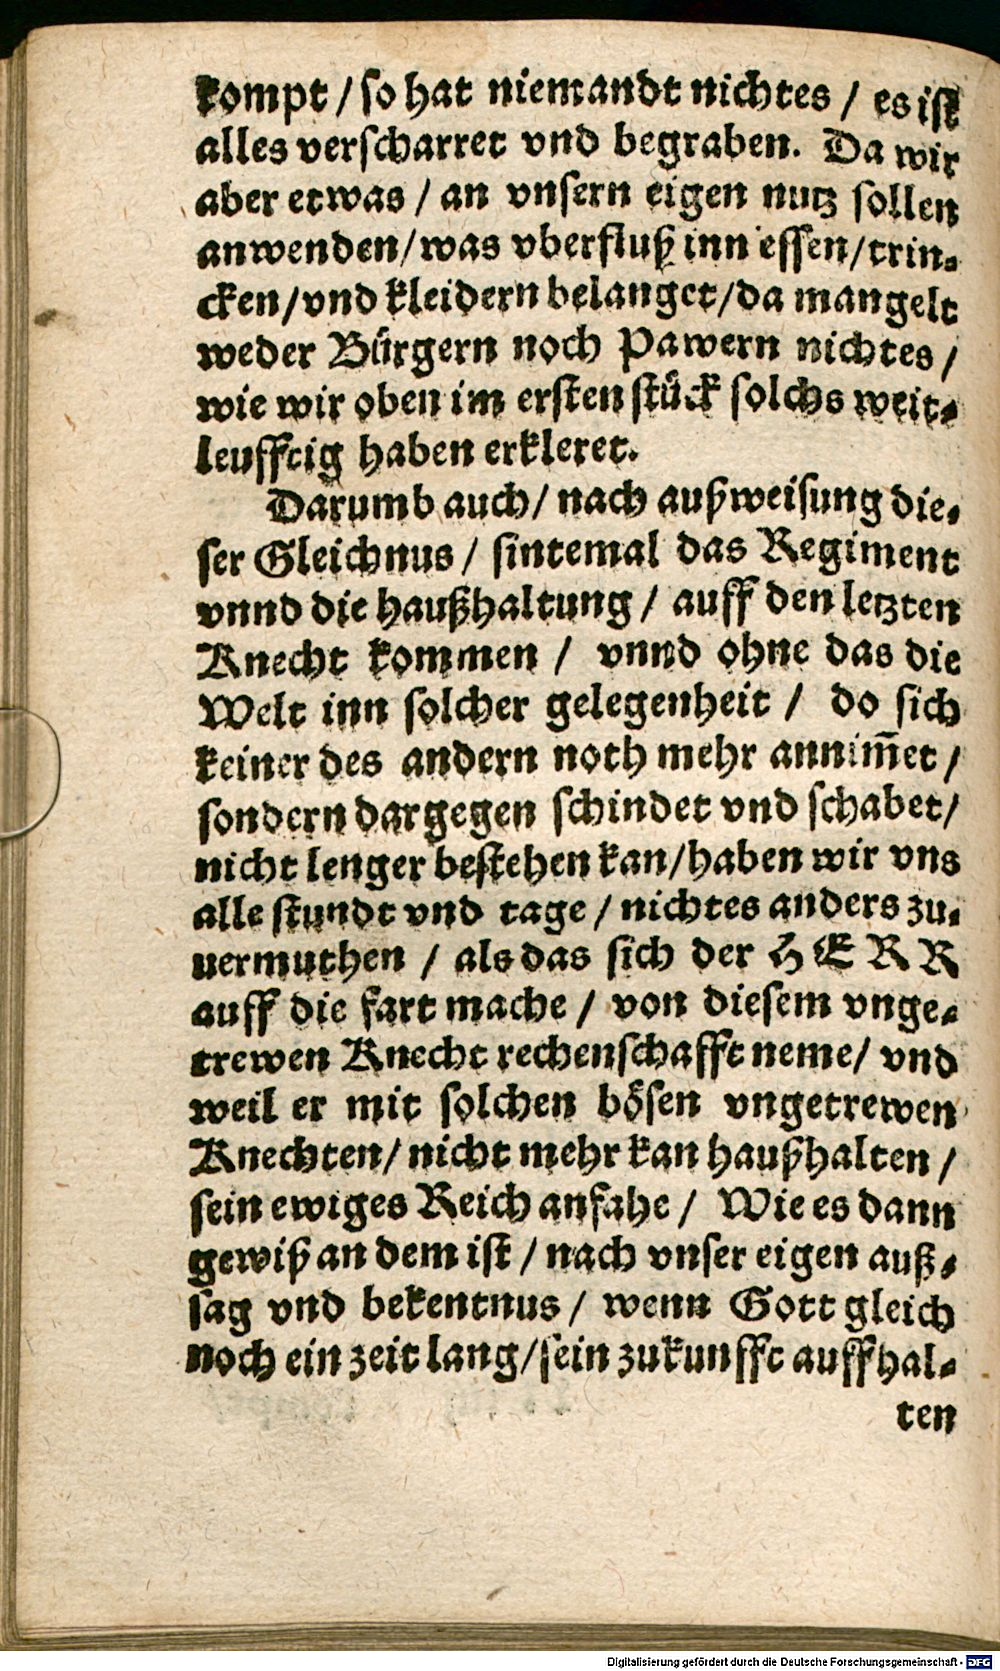 kompt / so hat niemandt nichtes / es ist
alles verscharret vnd begraben. Da wir
aber etwas / an vnsern eigen nutz sollen
anwenden / was vberfluß inn essen / trin⸗
cken / vnd kleidern belanget / da mangelt
weder Bürgern noch Pawern nichtes /
wie wir oben im ersten stück solchs weit⸗
leufftig haben erkleret.
Darumb auch / nach außweisung die⸗
ser Gleichnus / sintemal das Regiment
vnnd die haußhaltung / auff den letzten
Knecht kommen / vnnd ohne das die
Welt inn solcher gelegenheit / do sich
keiner des andern noth mehr annim̃et /
sondern dargegen schindet vnd schabet /
nicht lenger bestehen kan / haben wir vns
alle stundt vnd tage / nichtes anders zu⸗
uermuthen / als das sich der HERR
auff die fart mache / von diesem vnge⸗
trewen Knecht rechenschafft neme / vnd
weil er mit solchen bösen vngetrewen
Knechten / nicht mehr kan haußhalten /
sein ewiges Reich anfahe / Wie es dann
gewiß an dem ist / nach vnser eigen auß⸗
sag vnd bekentnus / wenn Gott gleich
noch ein zeit lang / sein zukunfft auffhal⸗
ten
Digitalisierung gefördert durch die Deutsche Forschungsgemeinschaft - DFG